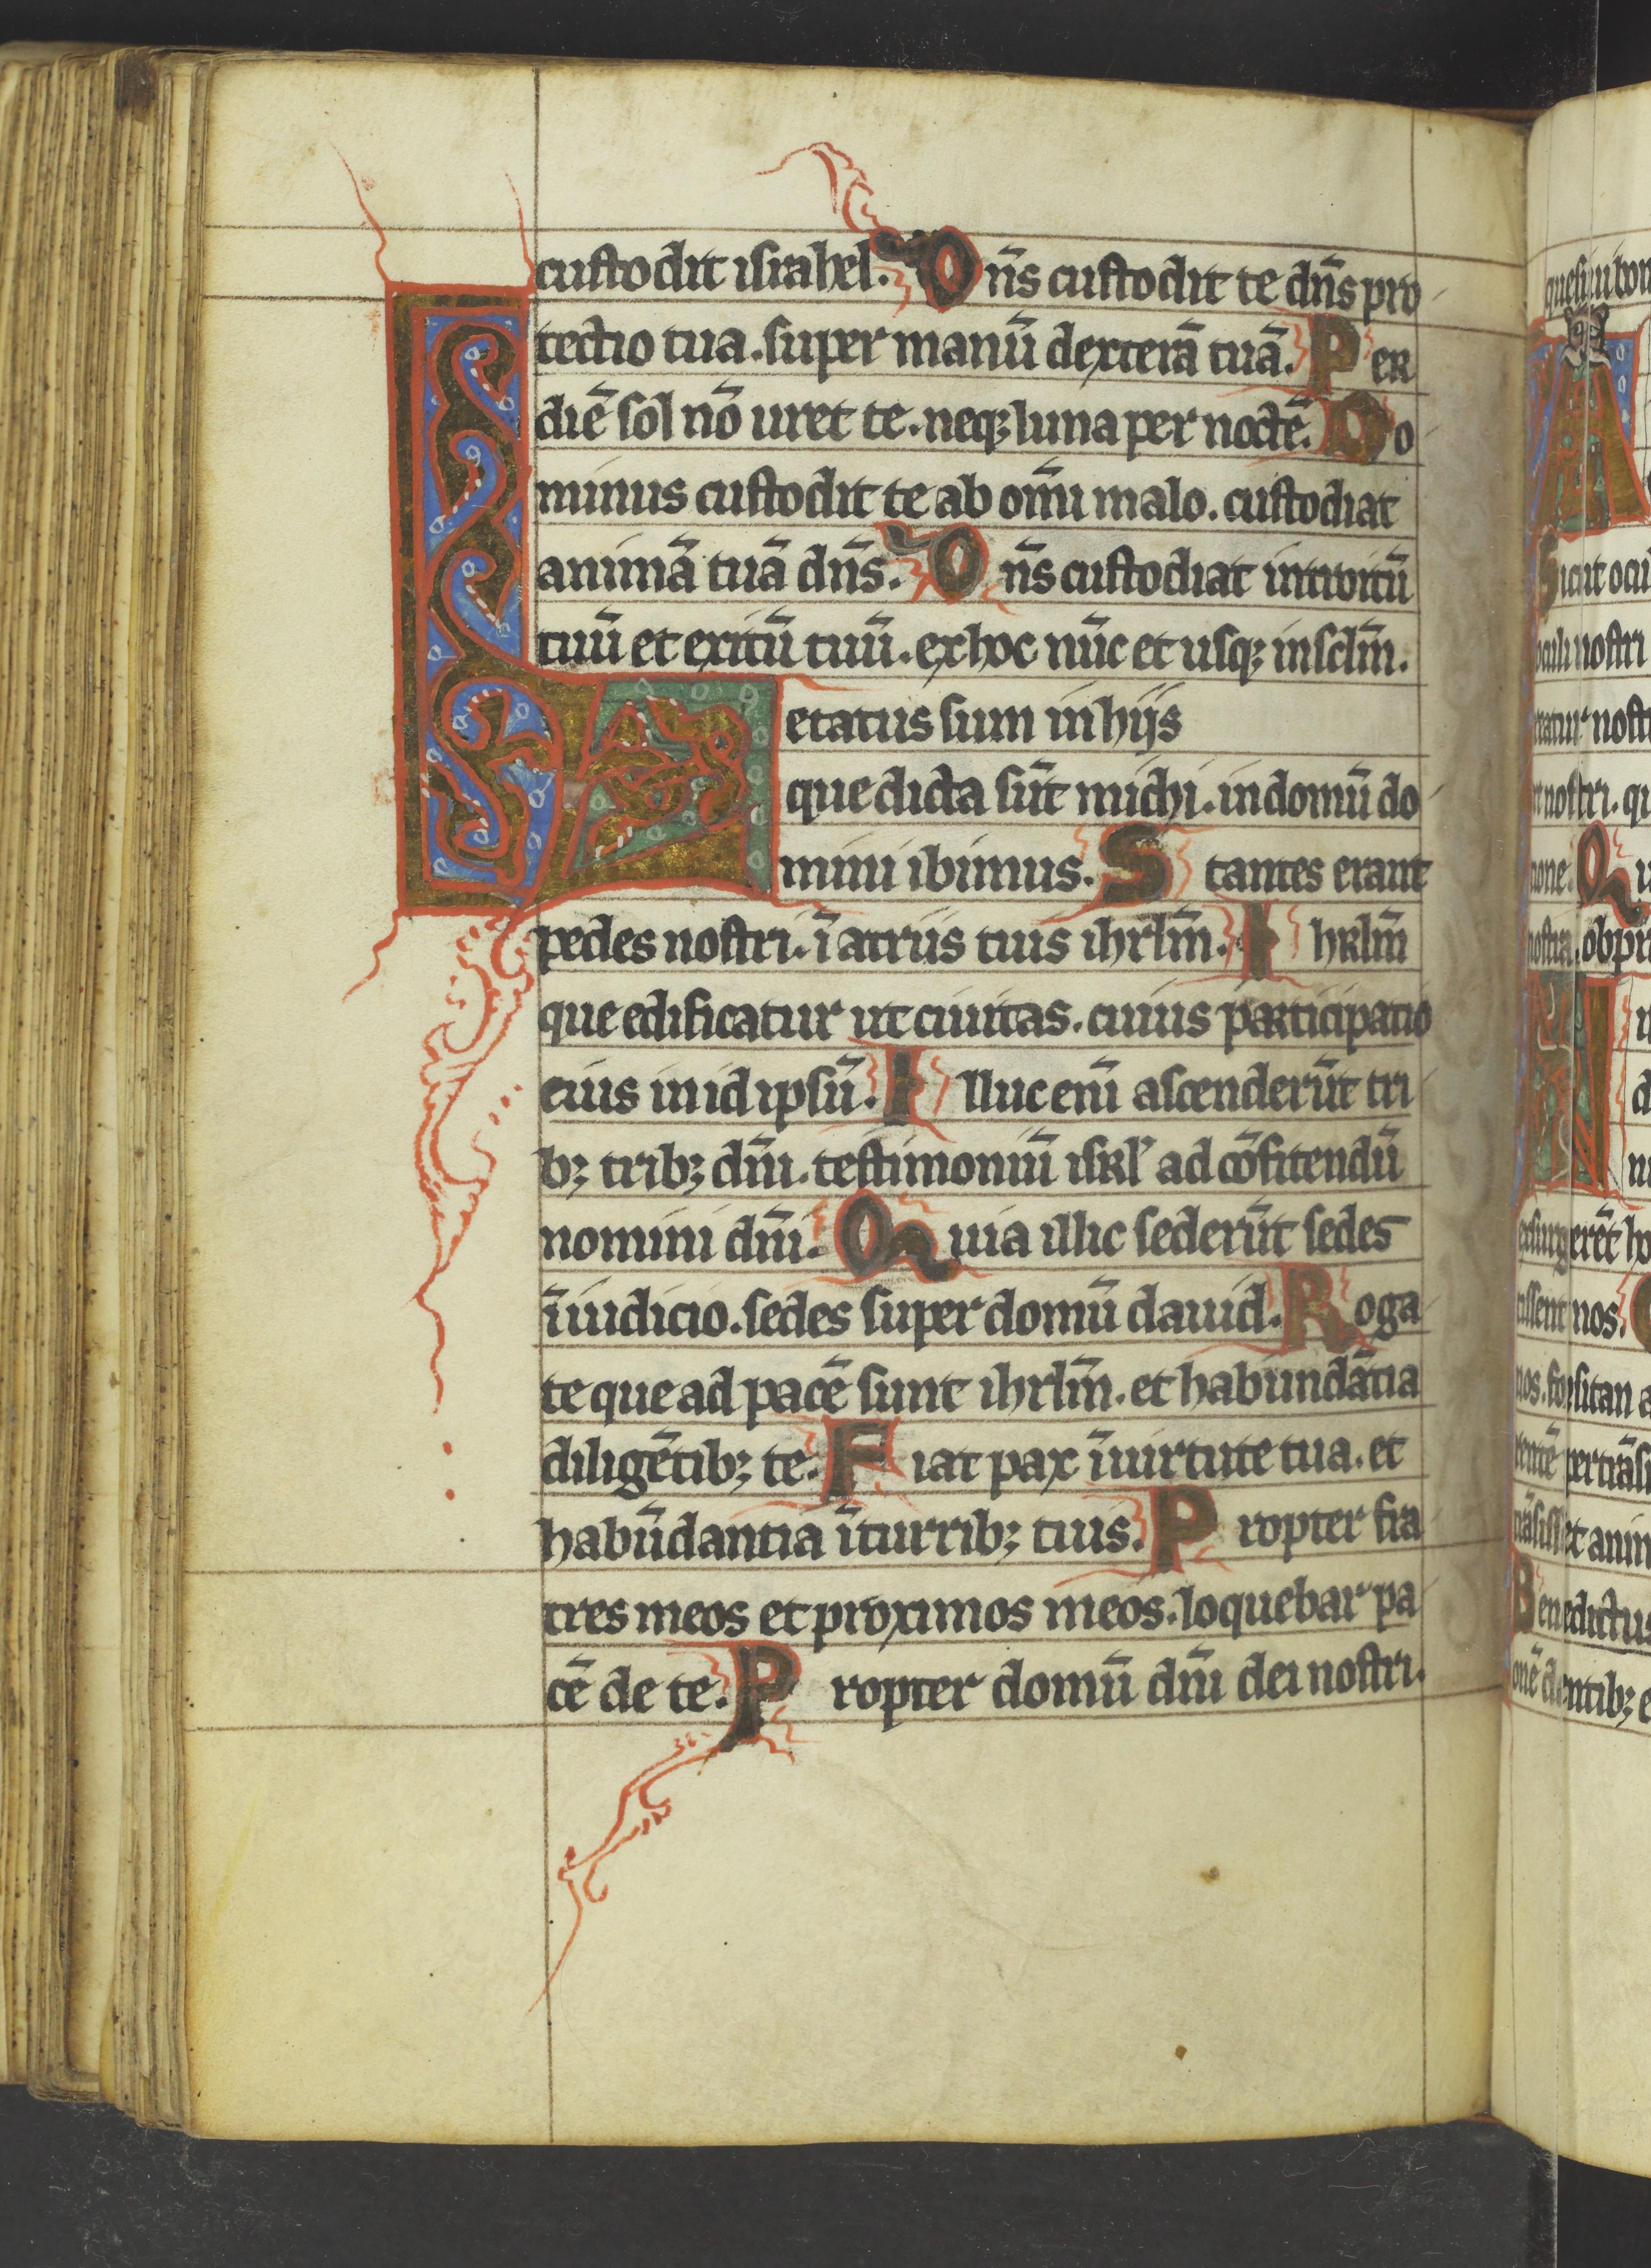 custodit israhel. Dn̄s custodit te dn̄s pro
tectio tua. super manū dexterā tuā. Per
diē sol nō uret te. neq; luna per noctē. Do
minus custodit te ab om̄i malo. custodiat
animā tuā dn̄s. Dn̄s custodiat introitū
tuū et exitū tuū. ex hoc nūc et usq; in sclm̄.
Letatus sum in hijs
que dicta sūt michi. in domū do
mini ibimus. Stantes erant
pedes nostri. ī atriis tuis ihrlm̄. Ihrlm̄
que edificatur ut ciuitas. cuius participatio
eius in id ipsū. Illuc enī ascenderūt tri
b; trib; dn̄i. testimoniū isrl' ad cōfitendū
nomini dn̄i. Quia illic sederūt sedes
ī iudicio. sedes super domū dauid. Roga
te que ad pacē sunt ihrlm̄. et habundātia
diligētib; te. Fiat pax ī uirtute tua. et
habūdantia ī turrib; tuis. Propter fra
tres meos et proximos meos. loquebar pa
cē de te. Propter domū dn̄i dei nostri.
A
Sicut ocu
oculi nostri
nostri. qu
Qu
nostra. obpr
N
nos.
nos. forsitan a
pertrāsi
et anim
Benedictus